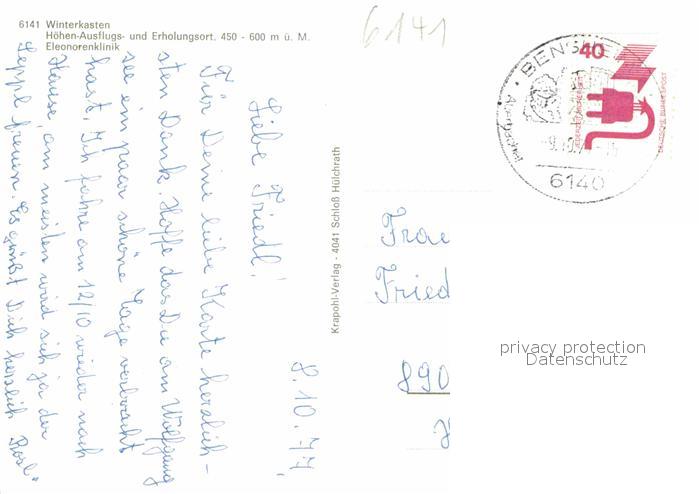 6141 Winterkasten
Höhen-Ausflugs- und Erholungsort. 450 - 600 m ü. M.
Eleonorenklinik
6141
8.10.77.
Liebe Friedl!
Für Deine liebe Karte herzlich-
sten Dank. Hoffe das Du am Wolfgang
see ein paar schöne Tage verbracht
hast. Ich fahre am 12/10 wieder nach
Hause, am meisten wird sich ja der
Seppl freuen. Es grüßt Dich herzlich Rosl.
Krapohl-Verlag - 4041 Schloß Hülchrath
Frau
Fried
890
BENSHEIM
6140
40
JEDERZEIT SICHERHEIT
DEUTSCHE BUNDESPOST
privacy protection
Datenschutz